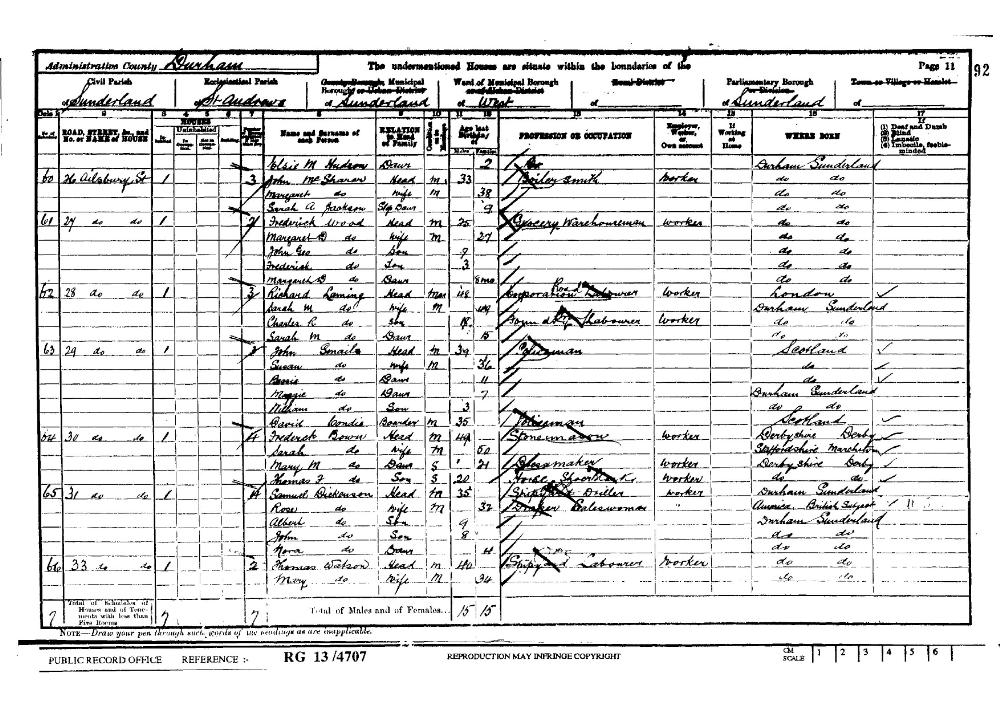 Administrative County Durham The undermentioned Houses are situate within the boundaries of the Page 11
92
Civil Parish Ecclesiastical Parish County Borough, Municipal Borough or Urban District Ward of Municipal Borough or of Urban District Rural District Parliamentary Borough or Division Town or Village or Hamlet
of Sunderland of St Andrews of Sunderland of West of of Sunderland of
ROAD, STREET, &c., and No. or NAME of HOUSE HOUSES Uninhabited Name and Surname of each Person RELATION to Head of Family Age last Birthday of Males Females PROFESSION OR OCCUPATION Employer, Worker, or Own account If Working at Home WHERE BORN If (1) Deaf and Dumb (2) Blind (3) Lunatic (4) Imbecile, feeble-minded
Elsie M Hudson Daur 2 Durham Sunderland
60 26 Ailsbury St 1 3 John Head m 33 Boiler Smith Worker do do
Margaret do Wife m 38 do do
Sarah A Jackson Step Daur 9 do do
61 27 do do 1 Frederick Wood Head m 25 Grocery Warehouseman worker do do
Margaret D do Wife m 27 do do
John Geo do Son do do
Frederick do Son 3 do do
Margaret D do Daur 8mo do do
62 28 do do 1 3 Richard Laming Head 48 Corporation Road Labourer Worker London
Sarah M do Wife m 49 Durham Sunderland
Charles R do Son 18 Labourer Worker do do
Sarah M do Daur 15 do do
63 29 do do 1 John Head m 39 Policeman Scotland
Susan do Wife m 36 do
do Daur 11 do
Maggie do Daur 7 Durham Sunderland
William do Son 3 do do
David Condie Boarder m 35 Policeman Scotland
64 30 do do 1 4 Frederick Bown Head m 49 Stonemason Worker Derbyshire Derby
Sarah do Wife m 50 Staffordshire
Mary M do Daur S 21 Dressmaker worker Derbyshire Derby
Thomas F do Son S 20 Worker do do
65 31 do do 1 4 Samuel Dickenson Head m 35 Shipyard Driller worker Durham Sunderland
Rose do Wife m 32 Draper Saleswoman " America British Subject
Albert do Son 9 Durham Sunderland
John do Son 8 do do
Nora do Daur 4 do do
66 33 do do 1 2 Thomas Watson Head m 40 Shipyard Labourer Worker do do
Mary do Wife m 34 do do
7 Total of Schedules of Houses and of Tenements with less than Five Rooms 7 7 Total of Males and of Females... 15 15
NOTE—Draw your pen through such words of the headings as are inapplicable.
PUBLIC RECORD OFFICE REFERENCE :- RG 13/4707 REPRODUCTION MAY INFRINGE COPYRIGHT CM SCALE 1 2 3 4 5 6